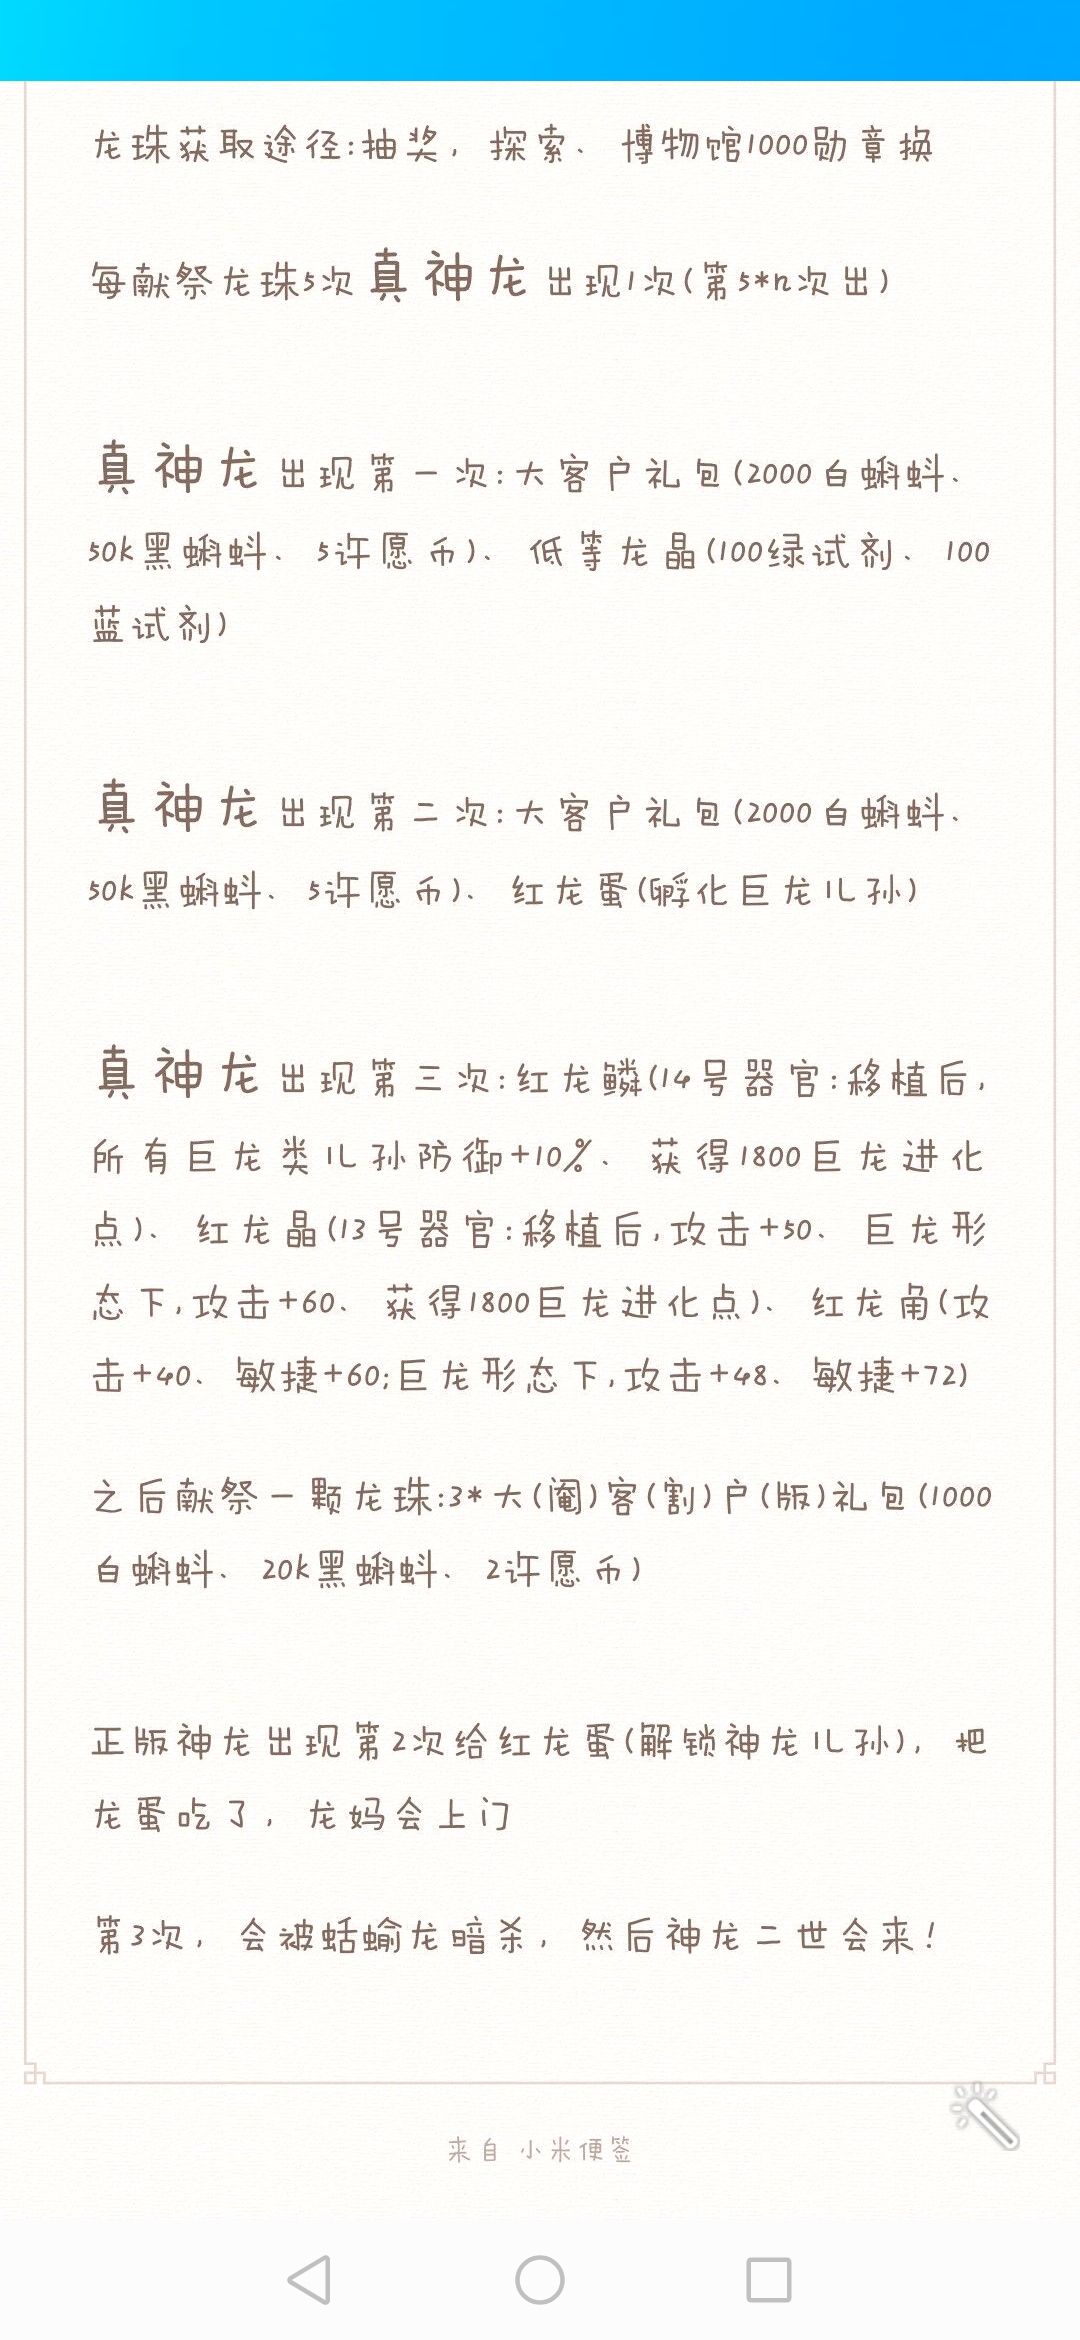 龙珠获取途径:抽奖，探索、博物馆1000勋章换
每献祭龙珠5次真神龙出现1次(第5*n次出)
真神龙出现第一次:大客户礼包(2000白蝌蚪、
50k黑蝌蚪、5许愿币)、低等龙晶(100绿试剂、100
蓝试剂)
真神龙出现第二次:大客户礼包(2000白蝌蚪、
50k黑蝌蚪、5许愿币)、红龙蛋(孵化巨龙儿孙)
真神龙出现第三次:红龙鳞(14号器官:移植后,
所有巨龙类儿孙防御+10%、获得1800巨龙进化
点)、红龙晶(13号器官:移植后,攻击+50、巨龙形
态下,攻击+60、获得1800巨龙进化点)、红龙角(攻
击+40、敏捷+60;巨龙形态下,攻击+48、敏捷+72)
之后献祭一颗龙珠:3*大(阉)客(割)户(版)礼包(1000
白蝌蚪、20k黑蝌蚪、2许愿币)
正版神龙出现第2次给红龙蛋(解锁神龙儿孙)，把
龙蛋吃了，龙妈会上门
第3次，会被蛞蝓龙暗杀，然后神龙二世会来！
来自 小米便签